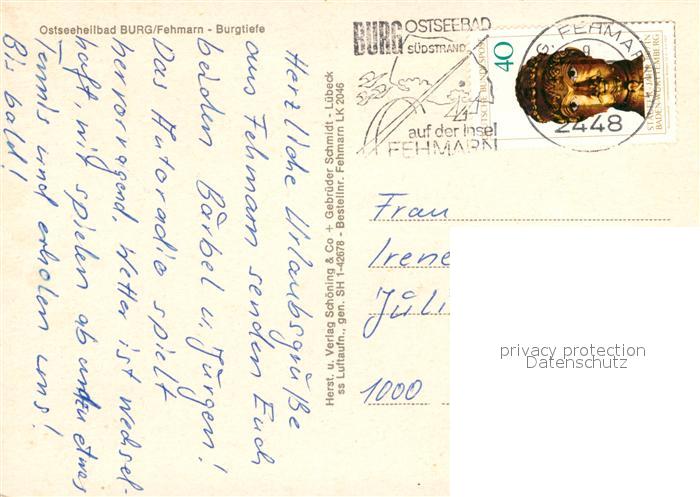 Ostseeheilbad BURG/Fehmarn - Burgtiefe
Herzliche Urlaubsgrüße
aus Fehmarn senden Euch
beiden Bärbel u. Jürgen!
Das Autoradio spielt
hervorragend, Wetter ist wechsel-
haft, wir spielen ab und zu etwas
Tennis und erholen uns!
Bis bald!
Herst. u. Verlag Schöning & Co + Gebrüder Schmidt - Lübeck
ss Luftaufn., gen. SH 1-42678 - Bestellnr. Fehmarn LK 2046
BURG OSTSEEBAD
SÜDSTRAND
auf der Insel
FEHMARN
40
DEUTSCHE BUNDESPOST
BADEN-WÜRTTEMBERG
FEHMARN
2448
Frau
Irene
Jüli
1000
privacy protection
Datenschutz